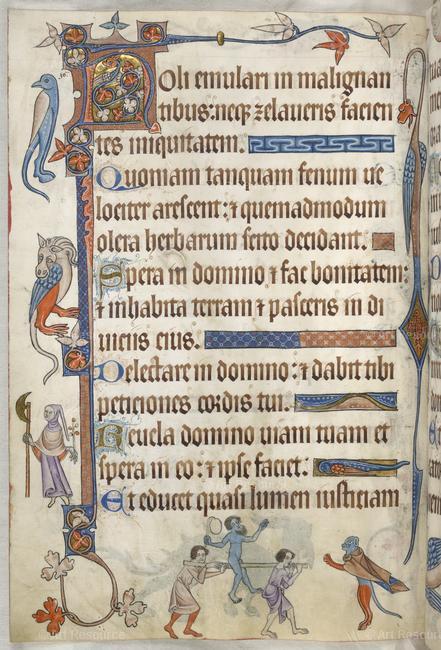 Noli emulari in malignan
tibus: neqȝ zelaueris facien
tes iniquitatem.
Quoniam tanquam fenum ue
lociter arescent: ⁊ quemadmodum
olera herbarum scito decidant.
Spera in domino ⁊ fac bonitatem:
⁊ inhabita terram ⁊ pasceris in di
uiciis eius.
Delectare in domino: ⁊ dabit tibi
peticiones cordis tui.
Reuela domino uiam tuam et
spera in eo: ⁊ ipse faciet.
Et educet quasi lumen iusticiam
© Art Resource
© Art Resource